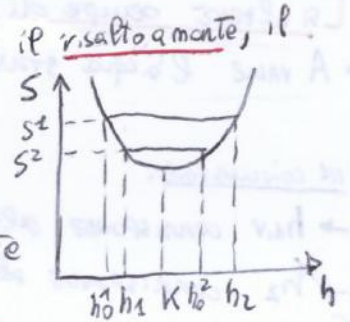 il risalto a monte, il
S
S¹
S²
te
h₀¹ h₁ K h₀² h₂ h